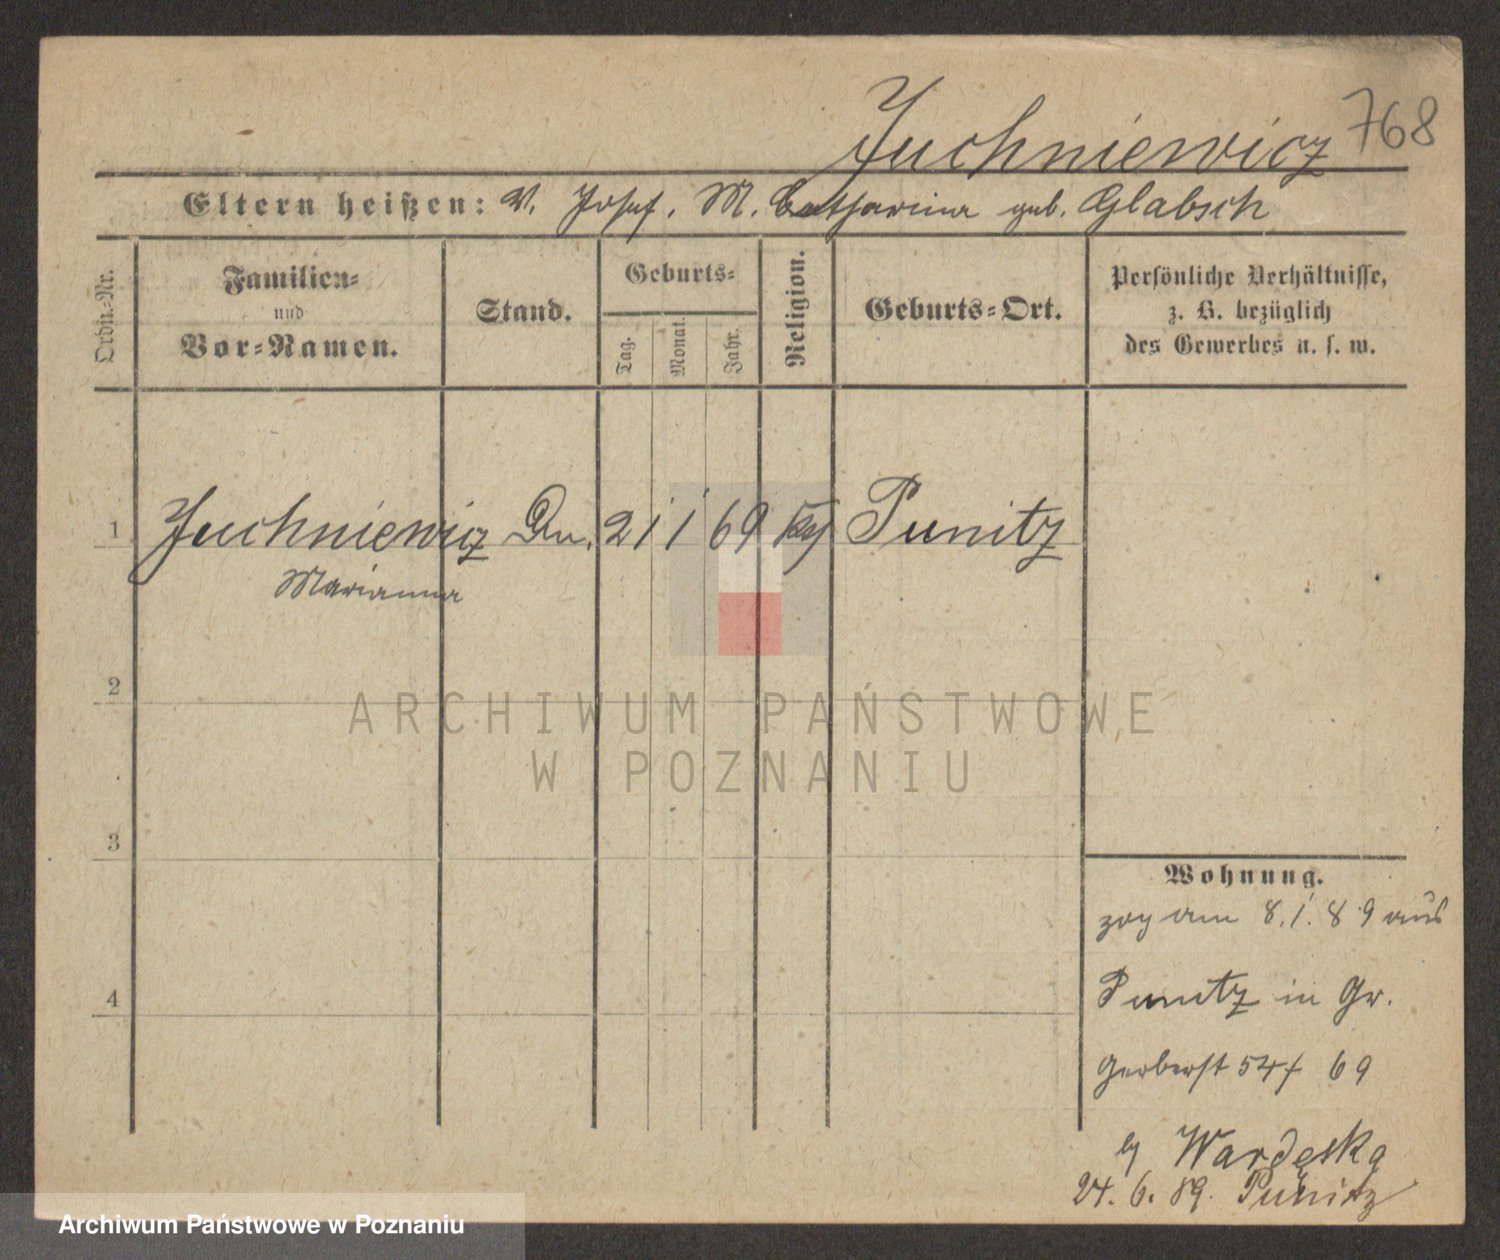 768
Juchniewicz
Eltern heißen: V. Josef, M. Catharina geb. Glabsch
Ordn.-Nr.
Familien-
und
Vor-Namen.
Stand.
Geburts-
Tag.
Monat.
Jahr.
Religion.
Geburts-Ort.
Persönliche Verhältnisse,
z. B. bezüglich
des Gewerbes u. s. w.
1 Juchniewicz Dn. 21 1 69 Punitz
Marianna
2
3
4
Wohnung.
zog am 8.1.89 aus
Punitz in Gr.
Gerberst 54 69
Wardęska
24.6.89. Punitz
ARCHIWUM PAŃSTWOWE
W POZNANIU
Archiwum Państwowe w Poznaniu